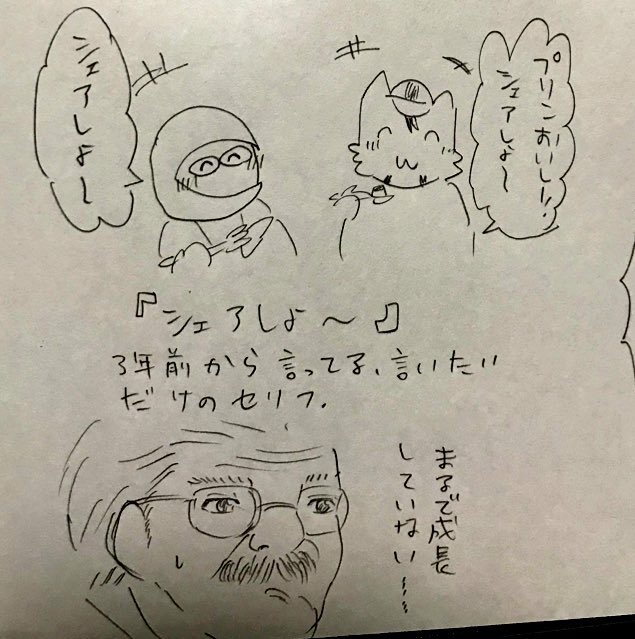 プリンおいしー!!
シェアしよ～
シェアしよ～
『シェアしよ～』
3年前から言ってる、言いたい
だけのセリフ.
まるで成長
していない……